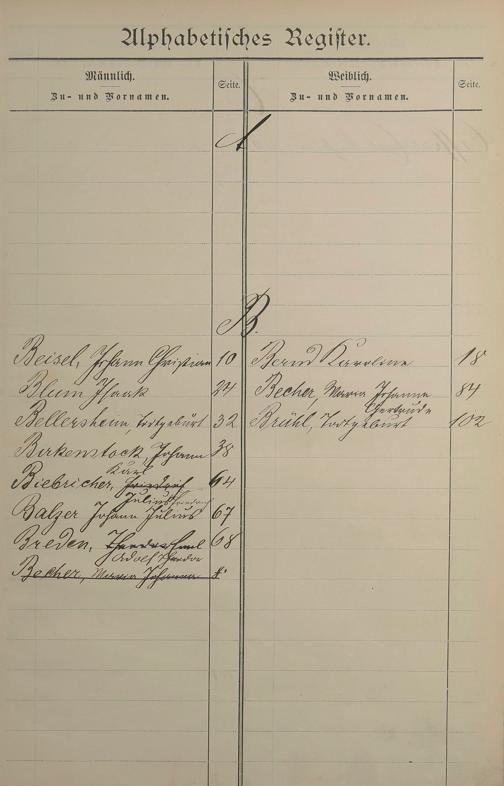 Alphabetisches Register.
Männlich.
Zu- und Vornamen.
Seite.
Weiblich.
Zu- und Vornamen.
Seite.
A
B.
Beisel, Johann Christian 10
Blum Isaak 24
Bellersheim, Todtgeburt 32
Birkenstock, Johann 38
Karl
Biebricher, Friedrich 64
Julius Friedrich
Balzer Johann Julius 67
Breden, 68
Adolf Theodor
Becher, Maria Johanna
Bernd Karoline 18
Becher, Maria Johanna 84
Gertrude
Brühl, Todtgeburt 102